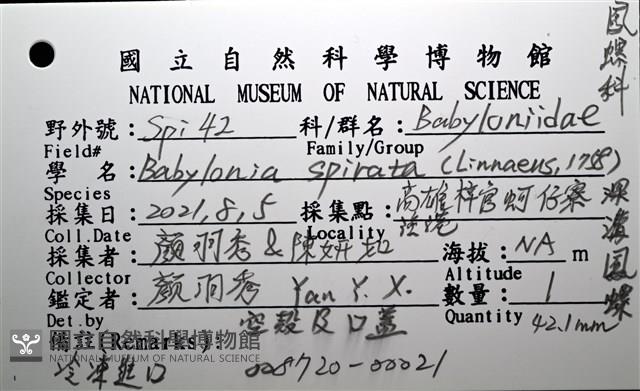 鳳螺科
國立自然科學博物館
NATIONAL MUSEUM OF NATURAL SCIENCE
野外號：Spi 42 科/群名：Babyloniidae
Field# Family/Group
學 名：Babylonia spirata (Linnaeus, 1758)
Species
採集日：2021, 8, 5 採集點：高雄梓官蚵仔寮
漁港
Coll.Date Locality
採集者：顏羽秀&陳妍 海拔：NA m
Collector Altitude
鑑定者：顏羽秀 Yan Y. X. 數量：1
Det.by Quantity 42.1mm
空殼及口蓋
備註(Remarks):
冷凍進口 008720-00021
深海鳳螺
國立自然科學博物館
NATIONAL MUSEUM OF NATURAL SCIENCE